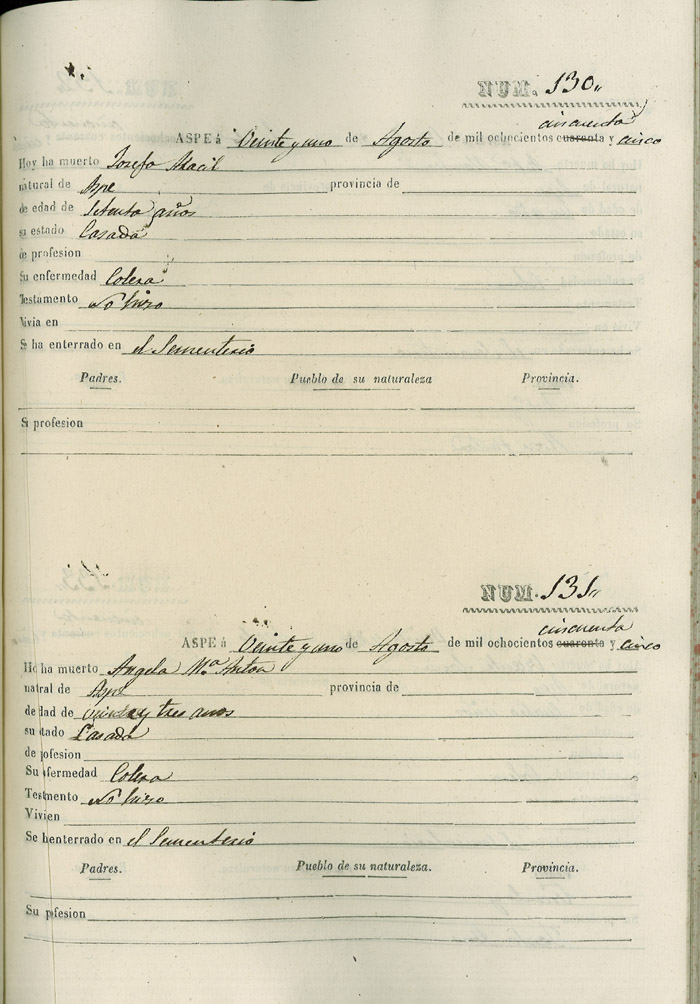 NUM. 130
cincuenta
ASPE á Veinte y uno de Agosto de mil ochocientos cuarenta y cinco
Hoy ha muerto Josefa
natural de Aspe provincia de
de edad de Setenta años
su estado Casada
de profesion
Su enfermedad Colera
Testamento No hizo
Vivia en
Se ha enterrado en el Sementerio
Padres. Pueblo de su naturaleza Provincia.
Su profesion
NUM. 131
cincuenta
ASPE á Veinte y uno de Agosto de mil ochocientos cuarenta y cinco
Ho ha muerto Angela Mª Anton
natral de Aspe provincia de
de dad de Veinte y tres anos
su tado Casada
de pofesion
Su efermedad Colera
Testmento No hizo
Vivien
Se henterrado en el Sementerio
Padres. Pueblo de su naturaleza. Provincia.
Su pfesion